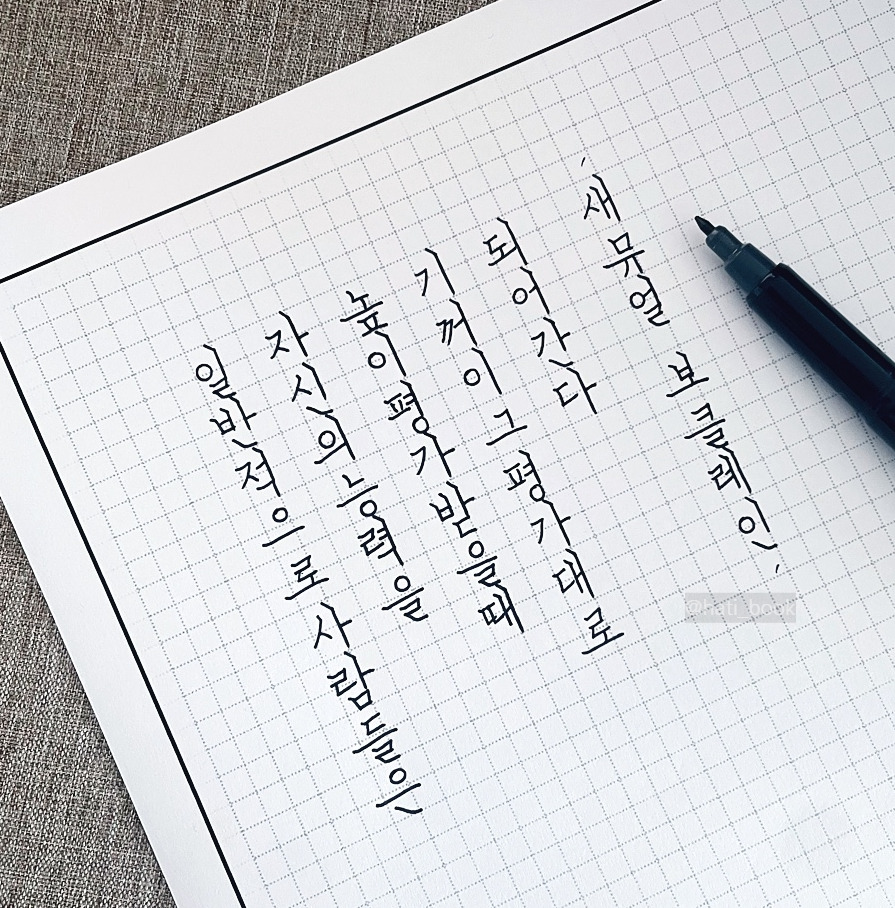 일반적으로 사람들은
자신의 능력을
높이 평가받을때
기꺼이 그 평가대로
되어간다
'새뮤얼 보클레인'
@hati_book